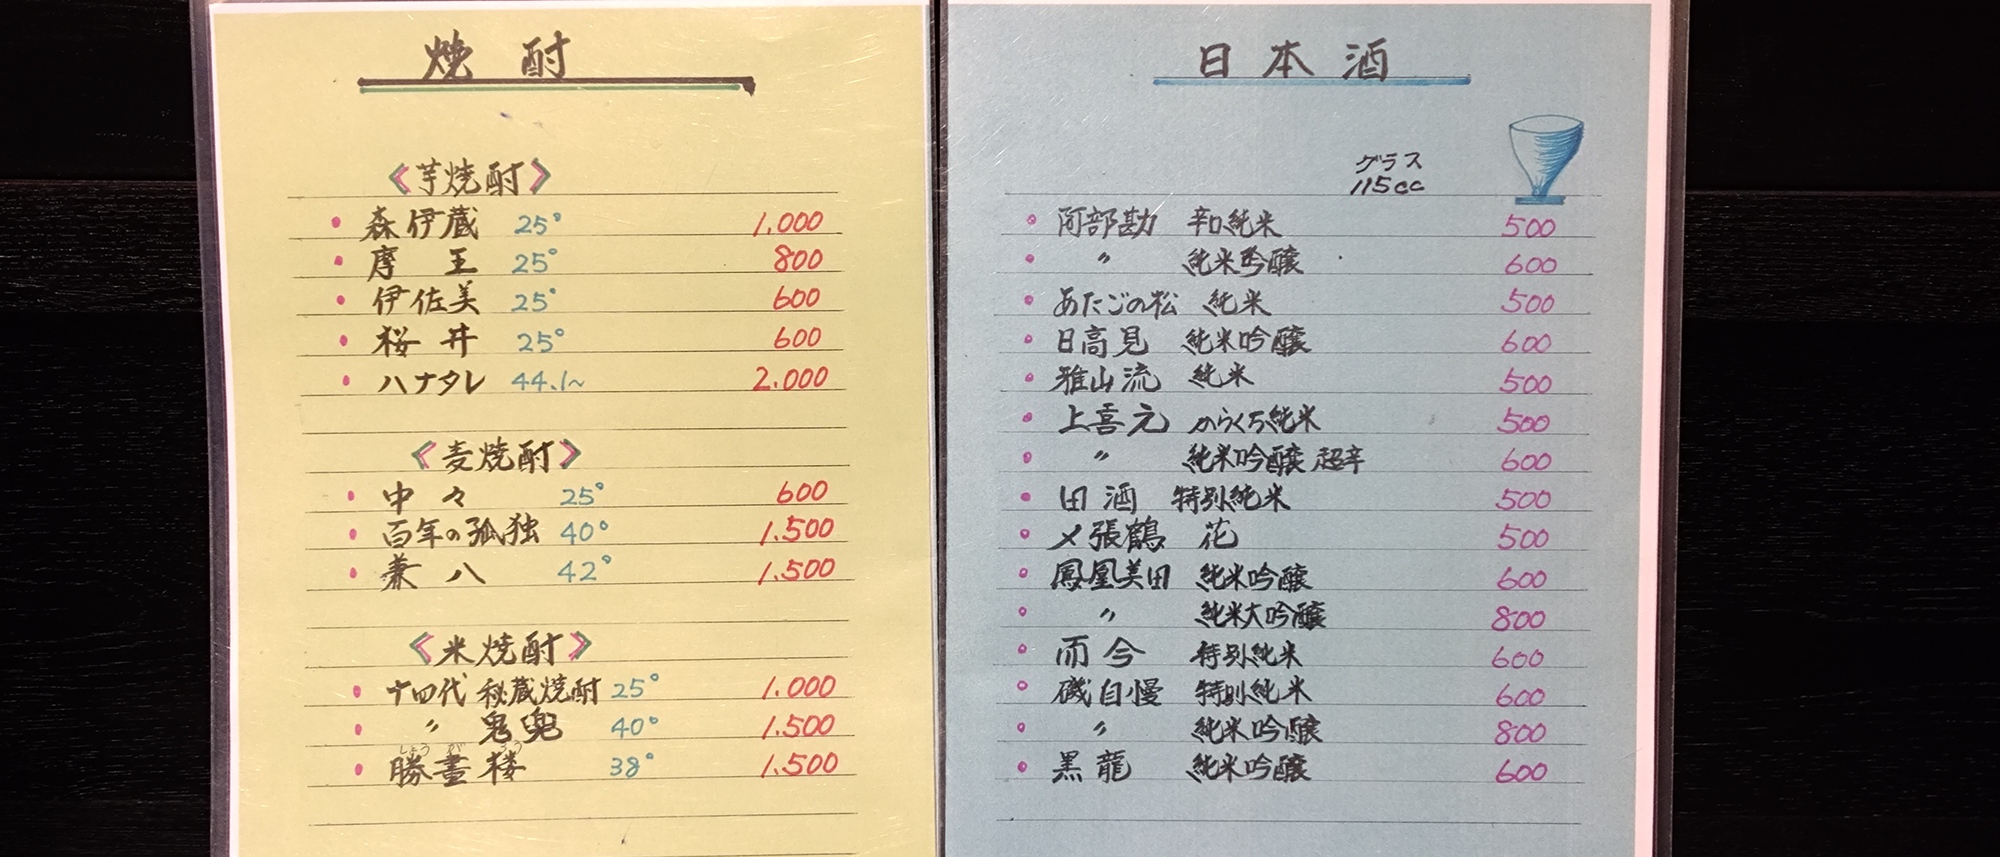 焼酎
《芋焼酎》
・森伊蔵 25° 1.000
・摩王 25° 800
・伊佐美 25° 600
・桜井 25° 600
・ハナタレ 44.1~ 2.000
《麦焼酎》
・中々 25° 600
・百年の孤独 40° 1.500
・兼八 42° 1.500
《米焼酎》
・十四代 秘蔵焼酎 25° 1.000
・〃 鬼兜 40° 1.500
・勝晝楼 38° 1.500
日本酒
グラス
115cc
・阿部勘 辛口純米 500
・〃 純米吟醸 600
・あたごの松 純米 500
・日高見 純米吟醸 600
・雅山流 純米 500
・上喜元 からくち純米 500
・〃 純米吟醸 超辛 600
・田酒 特別純米 500
・〆張鶴 花 500
・鳳凰美田 純米吟醸 600
・〃 純米大吟醸 800
・而今 特別純米 600
・磯自慢 特別純米 600
・〃 純米吟醸 800
・黒龍 純米吟醸 600